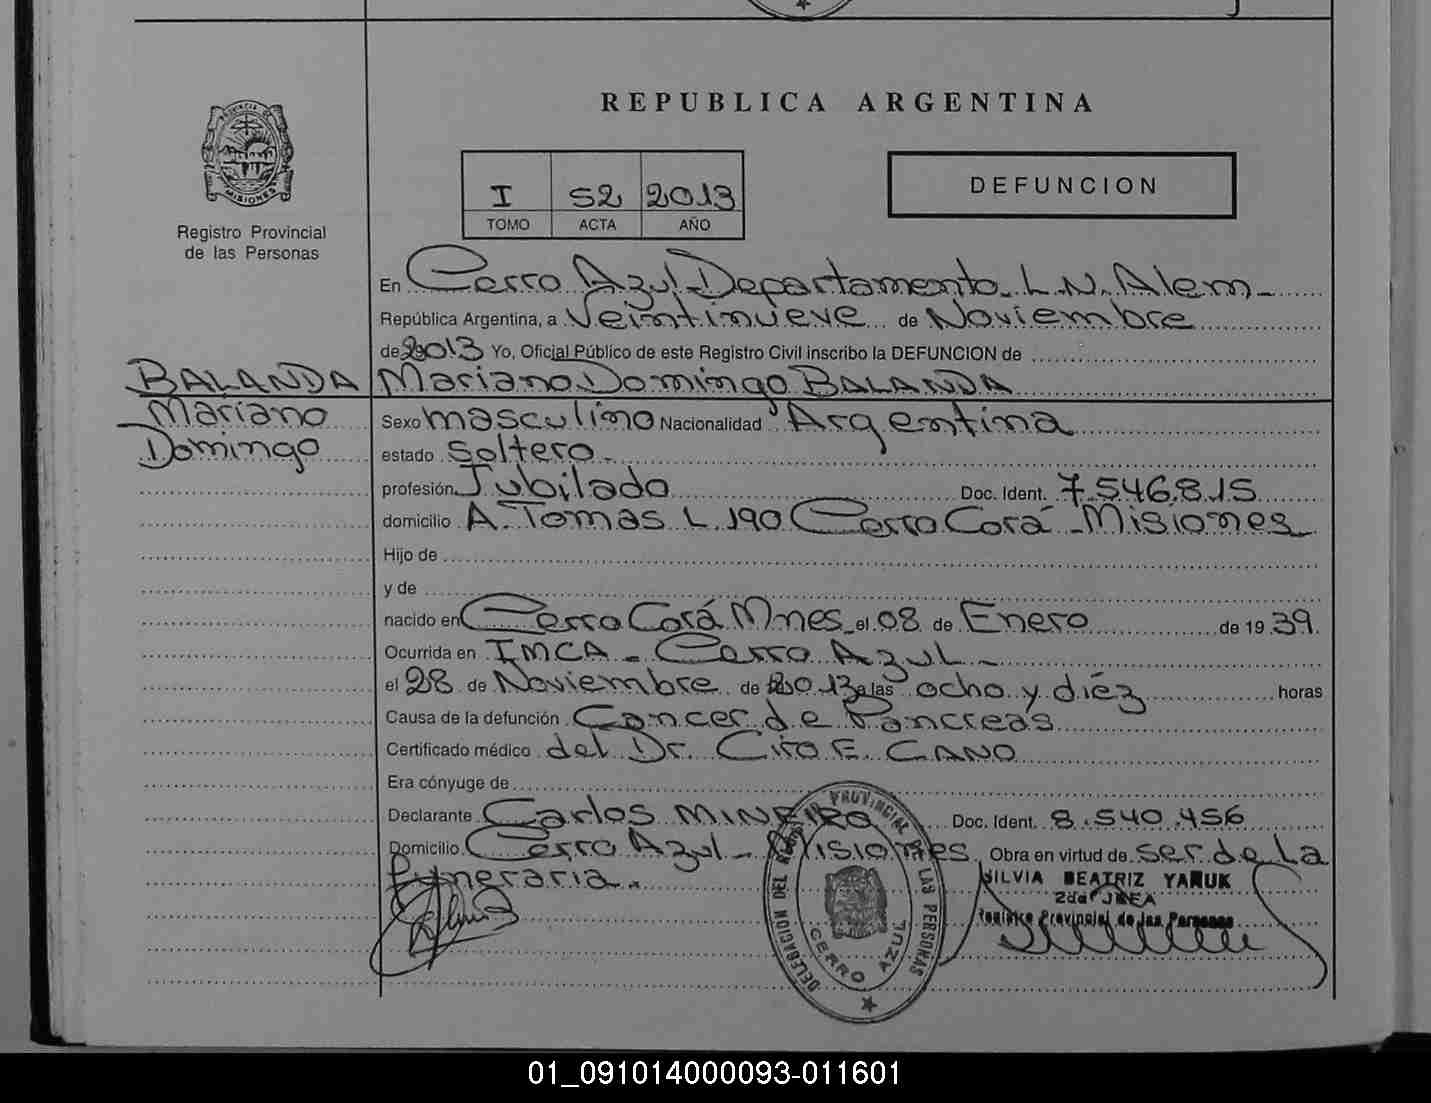 REPUBLICA ARGENTINA
PROVINCIA DE MISIONES
Registro Provincial
de las Personas
I 52 2013
TOMO ACTA AÑO
DEFUNCION
En Cerro Azul Departamento L.N. Alem
República Argentina, a Veintinueve de Noviembre
de 2013 Yo, Oficial Público de este Registro Civil inscribo la DEFUNCION de
BALANDA
Mariano
Domingo
Mariano Domingo BALANDA
Sexo masculino Nacionalidad Argentina
estado Soltero.
profesión Jubilado Doc. Ident. 7.546.815
domicilio A. Tomas L.190 Cerro Corá - Misiones
Hijo de
y de
nacido en Cerro Corá Mnes. el 08 de Enero de 19 39.
Ocurrida en IMCA - Cerro Azul -
el 28 de Noviembre de 2013 a las ocho y diéz horas
Causa de la defunción Cancer de Pancreas
Certificado médico del Dr. Ciro E. CANO
Era cónyuge de
Declarante Carlos MINEIRO Doc. Ident. 8.540.456
Domicilio Cerro Azul - Misiones Obra en virtud de ser de la
Funeraria.
DELEGACION DEL REGISTRO PROVINCIAL DE LAS PERSONAS
CERRO AZUL
SILVIA BEATRIZ YAÑUK
2da JEFA
Registro Provincial de las Personas
01_091014000093-011601